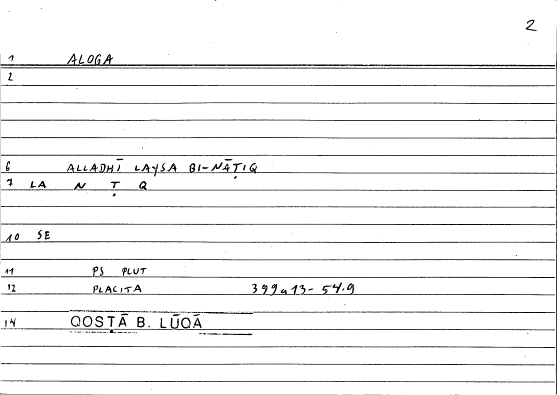 2
1 ALOGA
2
6 ALLADHĪ LAYSA BI-NĀṬIQ
7 LA N Ṭ Q
10 SE
11 PS PLUT
12 PLACITA 399a13-54.9
14 QOSṬĀ B. LŪQĀ